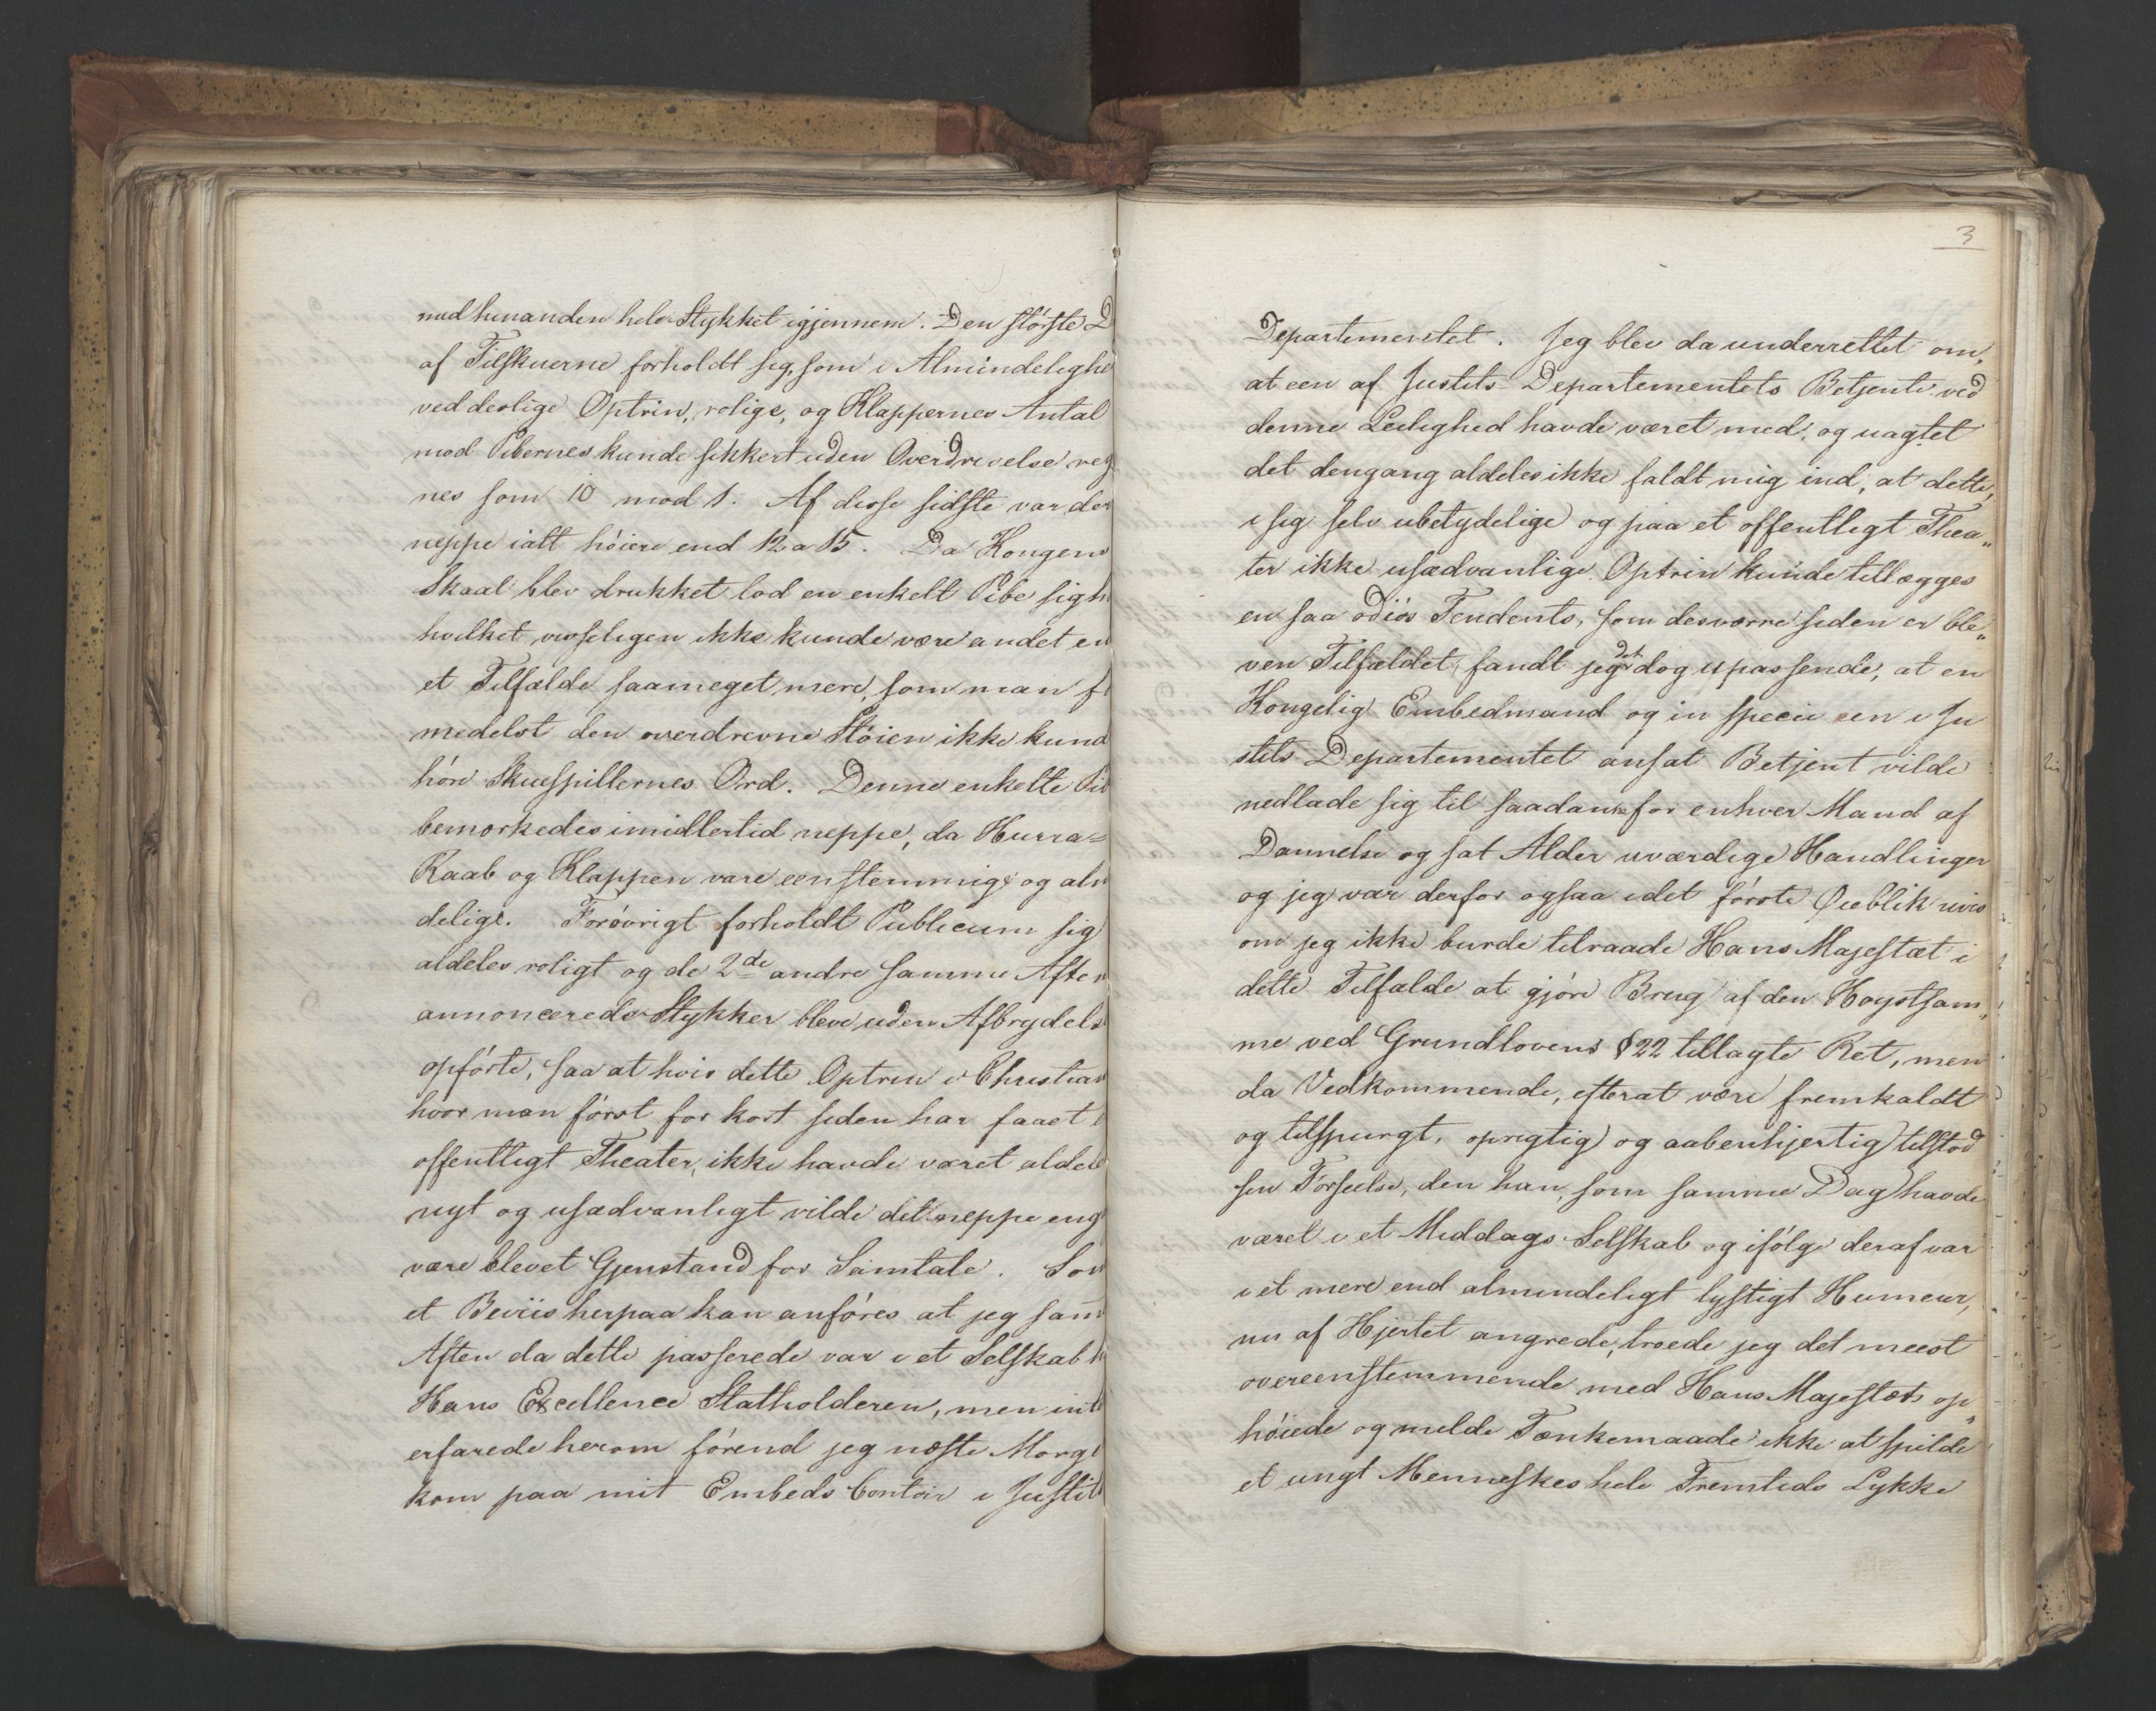 med hinanden hele Stykket igjennem. Den største D
af Tilskuerne forholdt sig, som i Almindelighe
ved deslige Optrin, rolige, og Klappernes Antal
mod Pibernes kunde sikkert uden Overdrivelse reg
nes som 10 mod 1. Af disse sidste var der
neppe ialt høiere end 12 a 15. Da Kongens
Skaal blev drukket lod en enkelt Pibe sig h
hvilket visseligen ikke kunde være andet en
et Tilfælde saameget mere, som man f
medelst den overdrevne Støien ikke kund
høre Skuespillernes Ord. Denne enkelte Pib
bemærkedes imidlertid neppe, da Hurra=
Raab og Klappen vare eenstemmige og alm
delige. Forøvrigt forholdt Publicum sig
aldeles roligt og de 2de andre samme Aften
annoncerede Stykker bleve uden Afbrydels
opførte, saa at hvis dette Optrin i Christian
hvor man først for kort siden har faaet e
offentligt Theater, ikke havde været aldele
nyt og usædvanligt vilde det neppe eng
være blevet Gjenstand for Samtale. Som
et Beviis herpaa kan anføres at jeg sam̄
Aften da dette passerede var i et Selskab h
Hans Excellence Statholderen, men int
erfarede herom førend jeg næste Morge
kom paa mit Embeds Contoir i Justits
3
Departementet. Jeg blev da underrettet om,
at een af Justits-Departementets Betjente ved
denne Leilighed havde været med, og uagtet
det dengang aldeles ikke faldt mig ind, at dette,
i sig selv ubetydelige og paa et offentligt Thea„
ter ikke usædvanlige Optrin kunde tillægges
en saa odiøs Tendents, som desværre siden er ble„
ven Tilfældet, fandt jeg det dog upassende, at en
Kongelig Embedmand og in specie een i Ju
stits Departementet ansat Betjent vilde
nedlade sig til saadanne for enhver Mand af
Dannelse og sat Alder uværdige Handlinger
og jeg var derfor ogsaa i det første Øieblik uvis
om jeg ikke burde tilraade Hans Majestæt i
dette Tilfælde at gjøre Brug af den Høystsam„
me ved Grundlovens § 22 tillagte Ret, men
da Vedkommende, efterat være fremkaldt
og tilspurgt, oprigtig og aabenhjertig tilstod
sin Forseelse, den han, som samme Dag havde
været i et Middags Selskab og ifølge deraf var
i et mere end almindeligt lystigt Humeur,
nu af Hjertet angrede, troede jeg det meest
overeenstemmende med Hans Majestæts op„
høiede og milde Tænkemaade ikke at spilde
et ungt Menneskes hele Fremtids Lykke